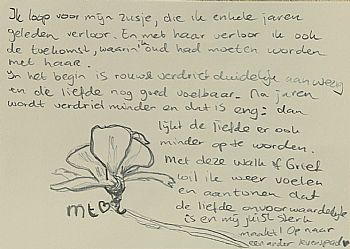 Ik loop voor mijn zusje, die ik enkele jaren
geleden verloor. En met haar verloor ik ook
de toekomst, waarin ik oud had moeten worden
met haar.
In het begin is rouwverdriet duidelijk aanwezig
en de liefde nog goed voelbaar. Na jaren
wordt verdriet minder en dat is eng: dan
lijkt de liefde er ook
minder op te worden.
Met deze Walk of Grief
wil ik weer voelen
en aantonen dat
de liefde onvoorwaardelijk
is en mij juist sterk
maakt! Op naar
een ander